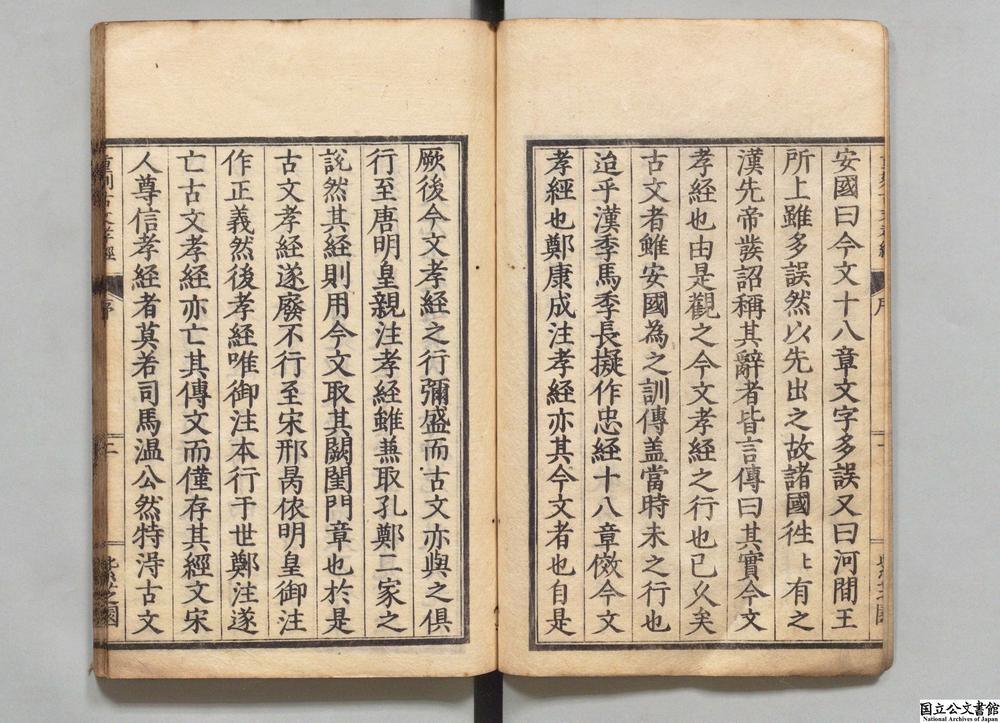 安國曰今文十八章文字多誤又曰河間王
所上雖多誤然以先出之故諸國徃〻有之
漢先帝發詔稱其辭者皆言傳曰其實今文
孝經也由是觀之今文孝經之行也已久矣
古文者雖安國為之訓傳盖當時未之行也
迨乎漢季馬季長擬作忠經十八章傚今文
孝經也鄭康成注孝經亦其今文者也自是
厥後今文孝經之行彌盛而古文亦與之俱
行至唐明皇親注孝經雖兼取孔鄭二家之
說然其經則用今文取其闕閨門章也於是
古文孝經遂廢不行至宋邢昺依明皇御注
作正義然後孝經唯御注本行于世鄭注遂
亡古文孝經亦亡其傳文而僅存其經文宋
人尊信孝經者莫若司馬温公然特淂古文
重刻古文孝經 序 二 紫芝園
国立公文書館
National Archives of Japan